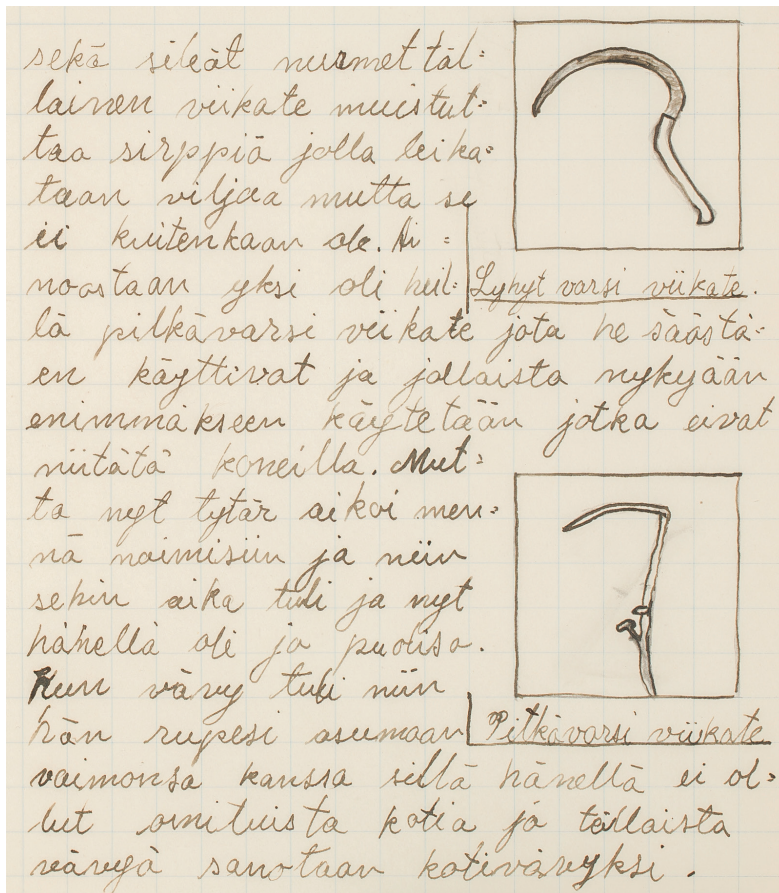 sekä sileät nurmet täl=
lainen viikate muistut=
taa sirppiä jolla leika=
taan viljaa mutta se
ei kuitenkaan ole. Ai =
noostaan yksi oli heil=
Lyhyt varsi viikate.
lä pitkävarsi viikate jota he säästä=
en käyttivat ja jollaista nykyään
enimmäkseen käytetään jotka eivat
niitätä koneilla. Mut=
ta nyt tytär aikoi men=
nä naimisiin ja niin
sehin aika tuli ja nyt
hänellä oli jo puoliso.
Kun vävy tuli niin
hän rupesi asumaan
Pitkävarsi viikate
vaimonsa kanssa sillä hänellä ei ol=
lut omituista kotia ja tällaista
vävyä sanotaan kotivävyksi.